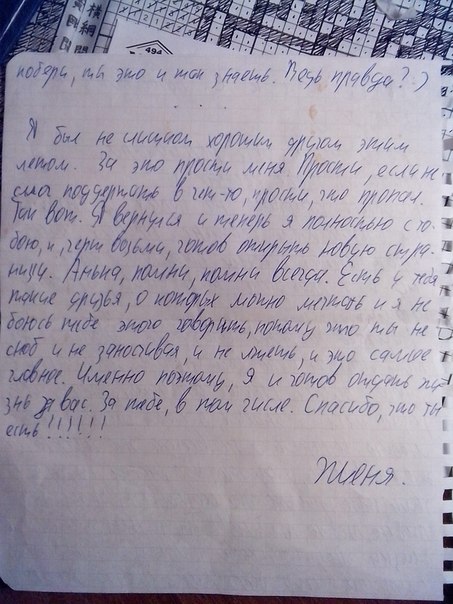 横綱
494
побери, ты это и так знаешь. Ведь правда? :)
Я был не слишком хорошим другом этим
летом. За это прости меня. Прости, если не
смог поддержать в чем-то, прости, что пропал.
Так вот. Я вернулся и теперь я полностью с то-
бою, и, черт возьми, готов открыть новую стра-
ницу. Анька, помни, помни всегда. Есть у тебя
такие друзья, о которых можно мечтать и я не
боюсь тебе этого говорить, потому что ты не
сноб и не заносчивая, и не лжешь, и это самое
главное. Именно поэтому, я и готов отдать жи-
знь за вас. За тебя, в том числе. Спасибо, что ты
есть!!!!!!
Женя.